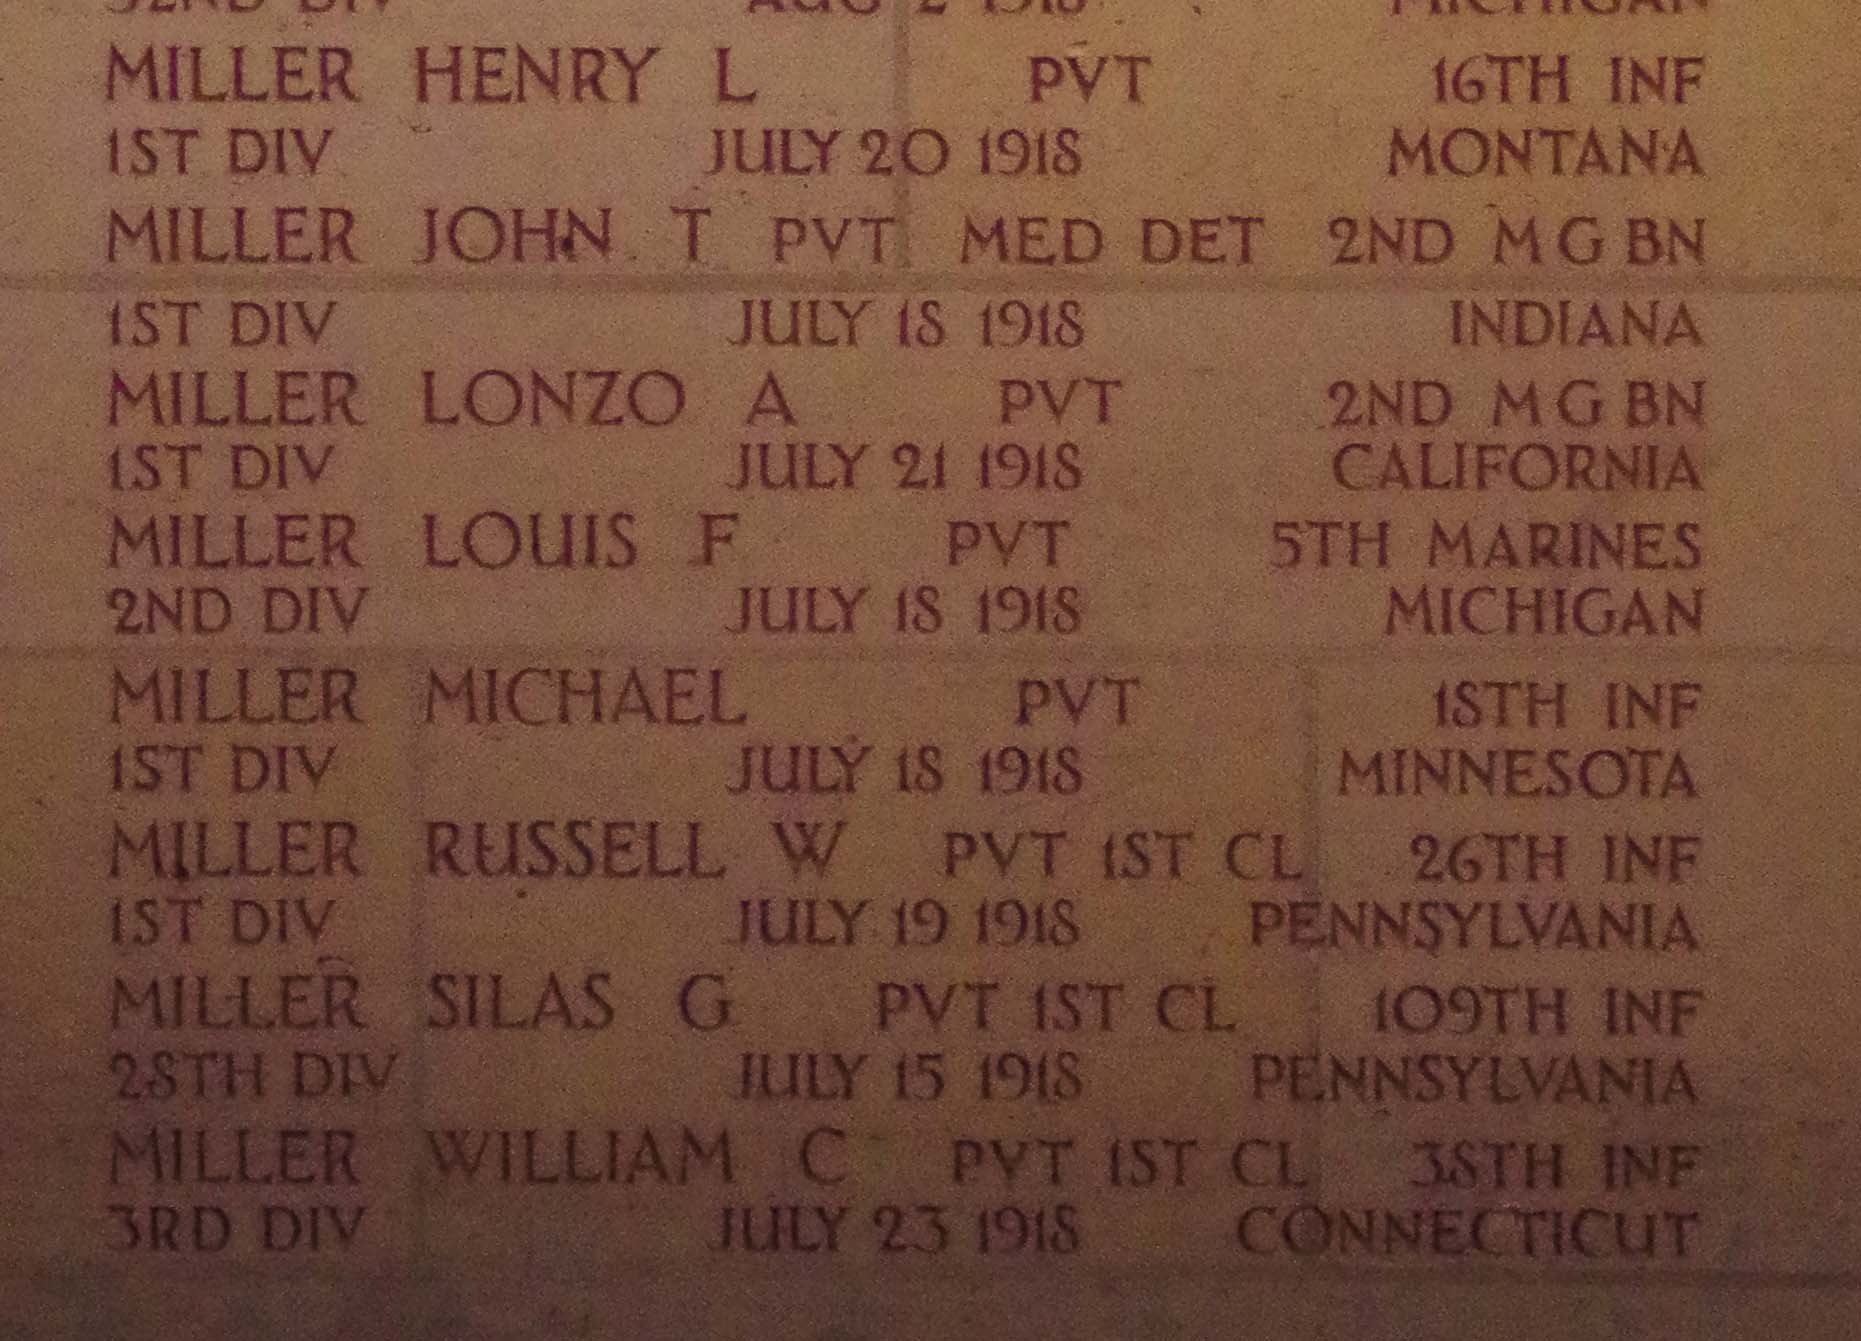 32ND DIV AUG 2 1918 MICHIGAN
MILLER HENRY L PVT 16TH INF
1ST DIV JULY 20 1918 MONTANA
MILLER JOHN T PVT MED DET 2ND M G BN
1ST DIV JULY 18 1918 INDIANA
MILLER LONZO A PVT 2ND M G BN
1ST DIV JULY 21 1918 CALIFORNIA
MILLER LOUIS F PVT 5TH MARINES
2ND DIV JULY 18 1918 MICHIGAN
MILLER MICHAEL PVT 18TH INF
1ST DIV JULY 18 1918 MINNESOTA
MILLER RUSSELL W PVT 1ST CL 26TH INF
1ST DIV JULY 19 1918 PENNSYLVANIA
MILLER SILAS G PVT 1ST CL 109TH INF
28TH DIV JULY 15 1918 PENNSYLVANIA
MILLER WILLIAM C PVT 1ST CL 38TH INF
3RD DIV JULY 23 1918 CONNECTICUT